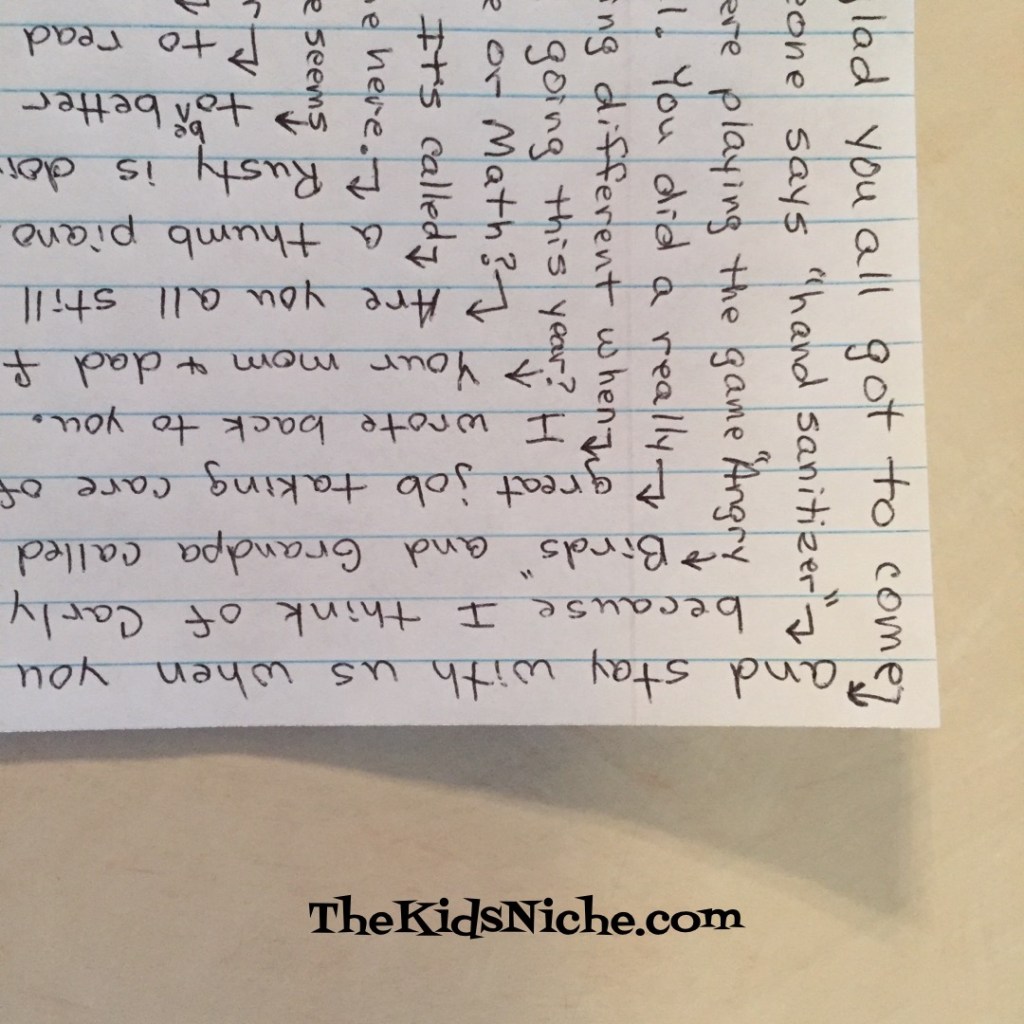 lad you all got to come
and stay with us when you
eone says "hand sanitizer"
because I think of Carly
ere playing the game "Angry
Birds" and Grandpa called
l. You did a really
great job taking care of
ing different when
I wrote back to you.
going this year?
Your mom + dad f
e or Math?
Are you all still
It's called
a thumb piano
e here.
Rusty is doi
e seems
to be better
r
to read
TheKidsNiche.com